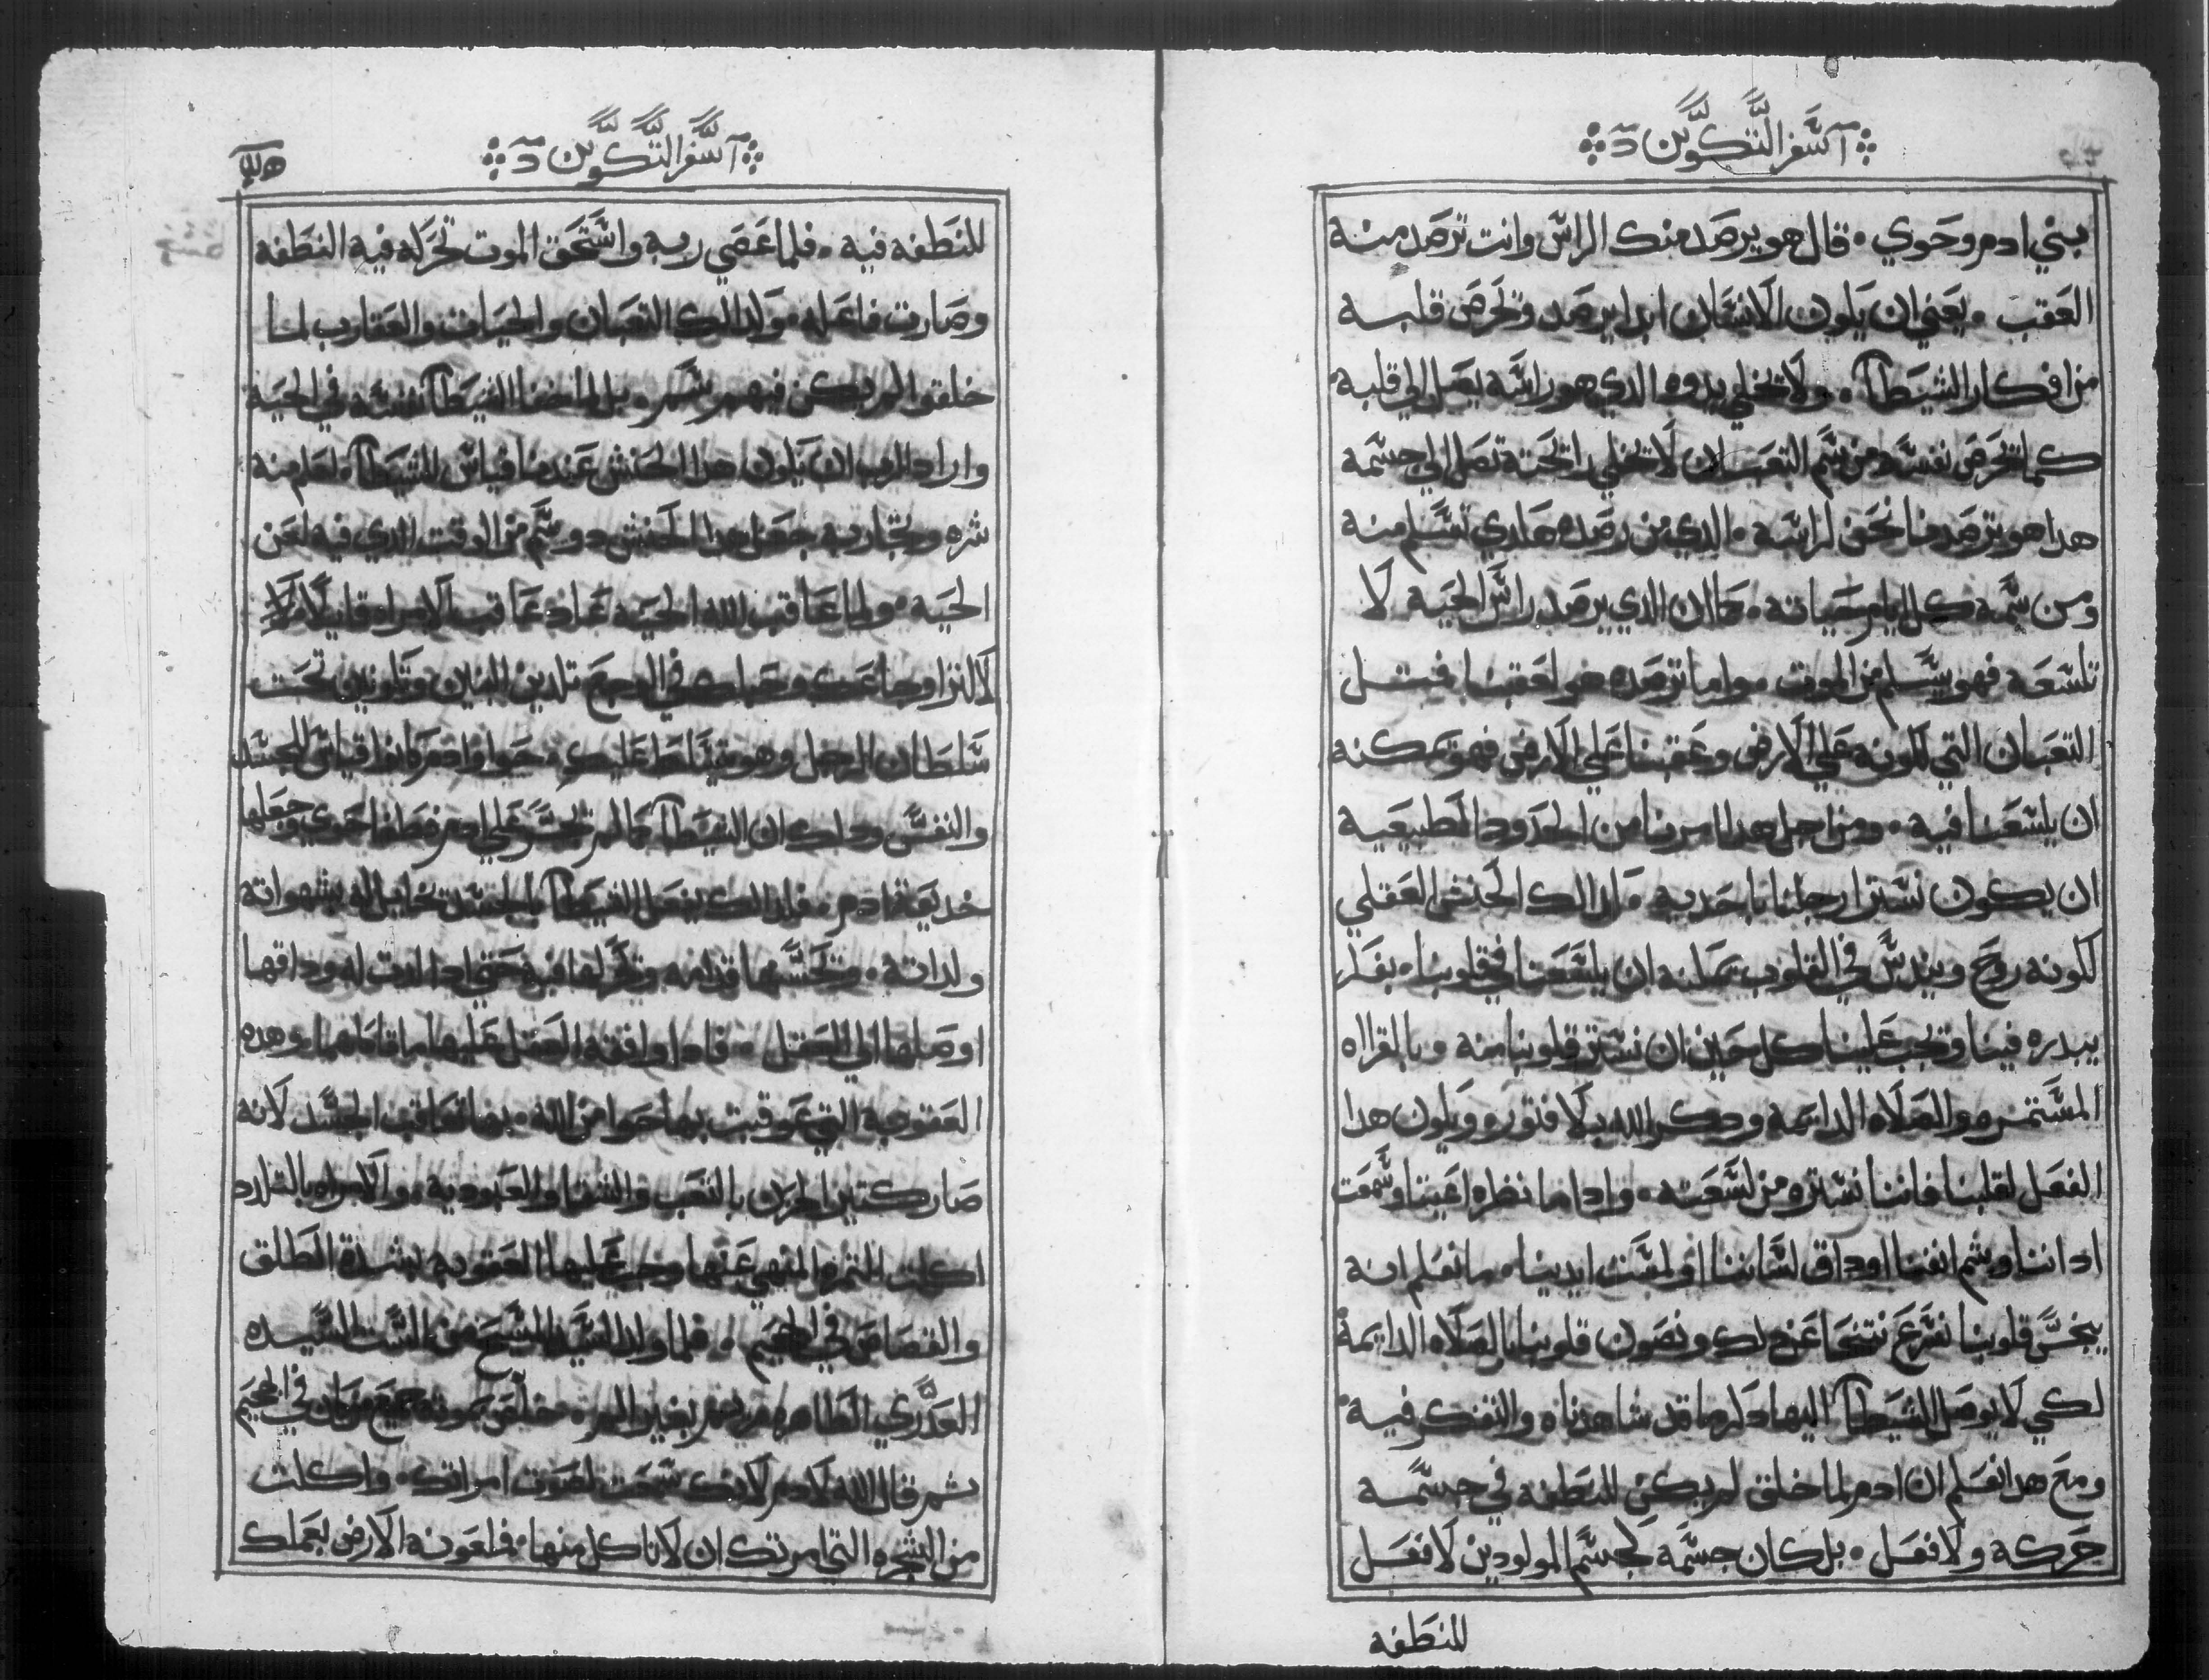 آ سفر التكوين د
بني ادم وحوي . قال هو يرصد منك الراس وانت ترصد منه
العقب . يعني ان يكون الانسان ابدا يرصد وتحرص قلبه
من افكار الشيطا . ولا تخلي يدوه الدي هو راسه يصل الي قلبه
كما تحرص نفسه من سم التعبان لا تخلي راتحته تصل الي جسمه
هدا هو ترصدنا نحن لراسه . الدي من رصده هادي تسلم منه
ومن سمه كل ايام حياته . كما ان الدي يرصد راس الحية لا
تلسعه فهو يسلم من الموت . واما ترصده هو لعقبنا فمتل
التعبان التي لكونه علي الارض وعقبنا علي الارض فهو تمكنه
ان يلسعنا فيه . ومن اجل هدا امرنا من الحدود الطبيعية
ان يكون نستر ارجلنا باحديه . كدالك الحنش العقلي
لكونه روح ويندس في القلوب تمكنه ان يلسعنا في قلوبنا . بفكر
يبدره فينا وتجب علينا كل حين ان نستر قلوبنا منه وبالقراه
المستمره والصلاه الدايمة ودكر الله بلا فتور ويكون هدا
الفعل لقلبنا فاننا نستره من لسعته . وادا ما نظره اعيننا وسمعت
اداننا وشم انفنا او داق لساننا او لمست ايدينا . ما نعلم انه
ينجس قلوبنا نسرع نتنحا عن دلك ونصون قلوبنا بالصلاه الدايمة
لكي لا يوصل الشيطا اليها دكر ما قد شاهدناه والتفكر فيه .
ومع هدا نعلم ان ادم لما خلق لم يكن للنطفه في جسمه
حركه ولا فعل . بل كان جسمه كجسم المولودين لا فعل
للنطفه
آ سفر التكوين د
للنطفه فيه . فلما عصي ربه واستحق الموت تحركه فيه النطفه
وصارت فاعله . وكدالك التعبان والحيات والعقارب لما
خلقوا لم يكن فيهم سم . بل لما اخفا الشيطا نفسه في الحية
واراد الرب ان يكون هدا الحنش عندنا قياس للشيطا . لنعلم منه
شره ونحاربه جعل هدا الحنش دو سم من الوقت الدي فيه لعن
الحية . ولما عاقب الله الحية عاد عاقب الامراه قايلا
لاكترا اوجاعك وحبلك في الوجع تلدين البنين وتكونين تحت
سلطان الرجل وهو يتسلط عليكي . حوا وادم كانوا قياس الجسد
والنفس ودلك ان الشيطا كما لم تجسر علي ادم فطغا حوي وجعلها
خديعة ادم . فكدالك يفعل الشيطا بالجسد تخايل له بشهواته
ولداته . وتحسنها قدامه وتحركها فيه حتي ادا لدت له وداقها
اوصلها الي العقل . فادا وافقه العقل عليها ماتا كلاهما . وهده
العقوبة التي عوقبت بها حوا من الله . بها تعاقب الجسد لانه
صار كتير الحزن بالتعب والشقا والعبودية . والامراه بالتلدد
اكلت التمره المنهي عنها وجب عليها العقوبه بشدة الطلق
والقصاص في الجحيم . فلما ولد السيد المسيح من الست السيده
العدري الطاهره مريم بغير الم . خلص بموته جميع من كان في الجحيم
تم قال الله لادم لانك سمعت لصوت امراتك . واكلت
من الشجره التي امرتك ان لا تاكل منها . فلعونه الارض بعملك